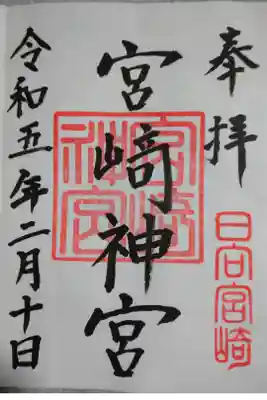 奉拝
日向宮崎
宮﨑神宮
宮崎神宮
令和五年二月十日